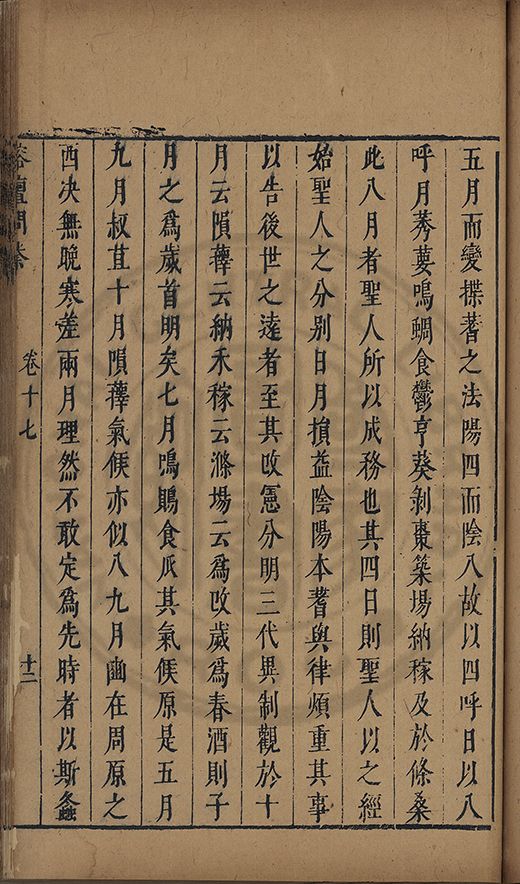 五月而變揲蓍之法陽四而陰八故以四呼日以八
呼月莠葽鳴蜩食鬱亨葵剝棗築場納稼及於條桑
此八月者聖人所以成務也其四日則聖人以之經
始聖人之分别日月損益陰陽本蓍與律煩重其事
以告後世之遠者至其改憲分明三代異制觀於十
月云隕蘀云納禾稼云滌場云為改歲為春酒則子
月之為歲首明矣七月鳴鵙食瓜其氣候原是五月
九月叔苴十月隕蘀氣候亦似八九月豳在周原之
西决無晚寒差兩月理然不敢定為先時者以斯螽
榕壇問業
卷十七
十二